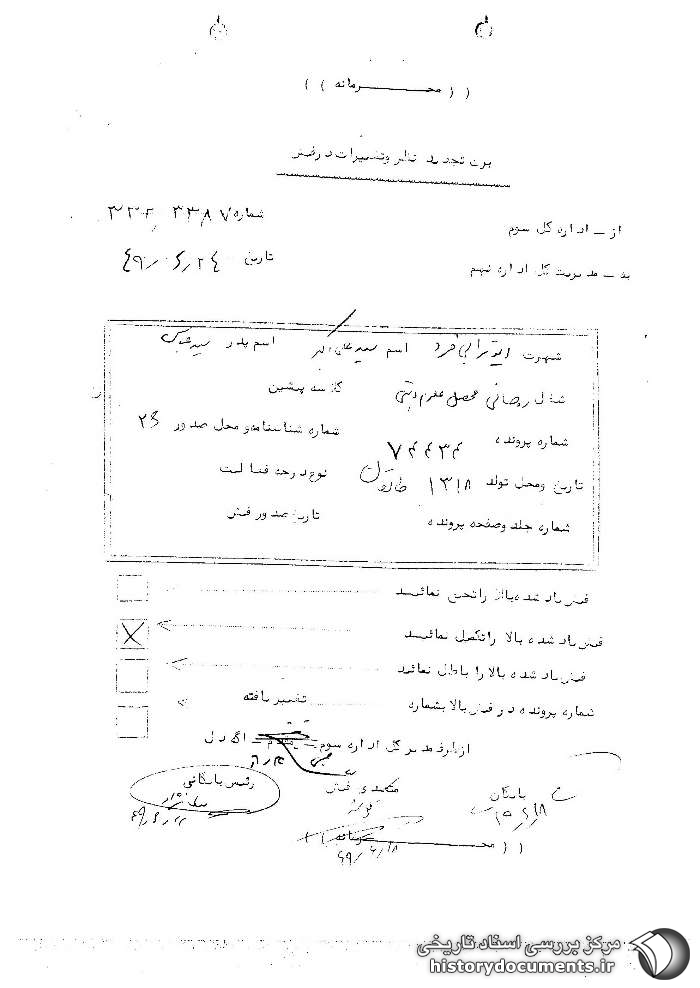 ( ( محرمانه ) )
برگ تجدید نظر و تغییرات در فیش
از ـ اداره کل سوم
شماره ۳۳۸۷ ۳۳۲
به ـ مدیریت کل اداره نهم
تاریخ ۴۹/۶/۲۴
شهرت ابوترابی فرد اسم سید علی اکبر اسم پدر سید عباس
شغل روحانی محصل علوم دینی کلاسه پیشین
شماره پرونده ۷۴۴۳۴ شماره شناسنامه و محل صدور ۲۳
تاریخ و محل تولد ۱۳۱۸ طالقان نوع درجه فعالیت
شماره جلد و صفحه پرونده تاریخ صدور فیش
فیش یاد شده بالا را تصحیح نمائید
فیش یاد شده بالا را تکمیل نمائید
فیش یاد شده بالا را باطل نمائید
شماره پرونده در فیش بالا بشماره تغییر یافته
از طرف مدیر کل اداره سوم ـ مقدم
بایگان
متصدی فیش
رئیس بایگانی
۴۹/۶/۱۸
( ( محرمانه ) )
مرکز بررسی اسناد تاریخی
historydocuments.ir